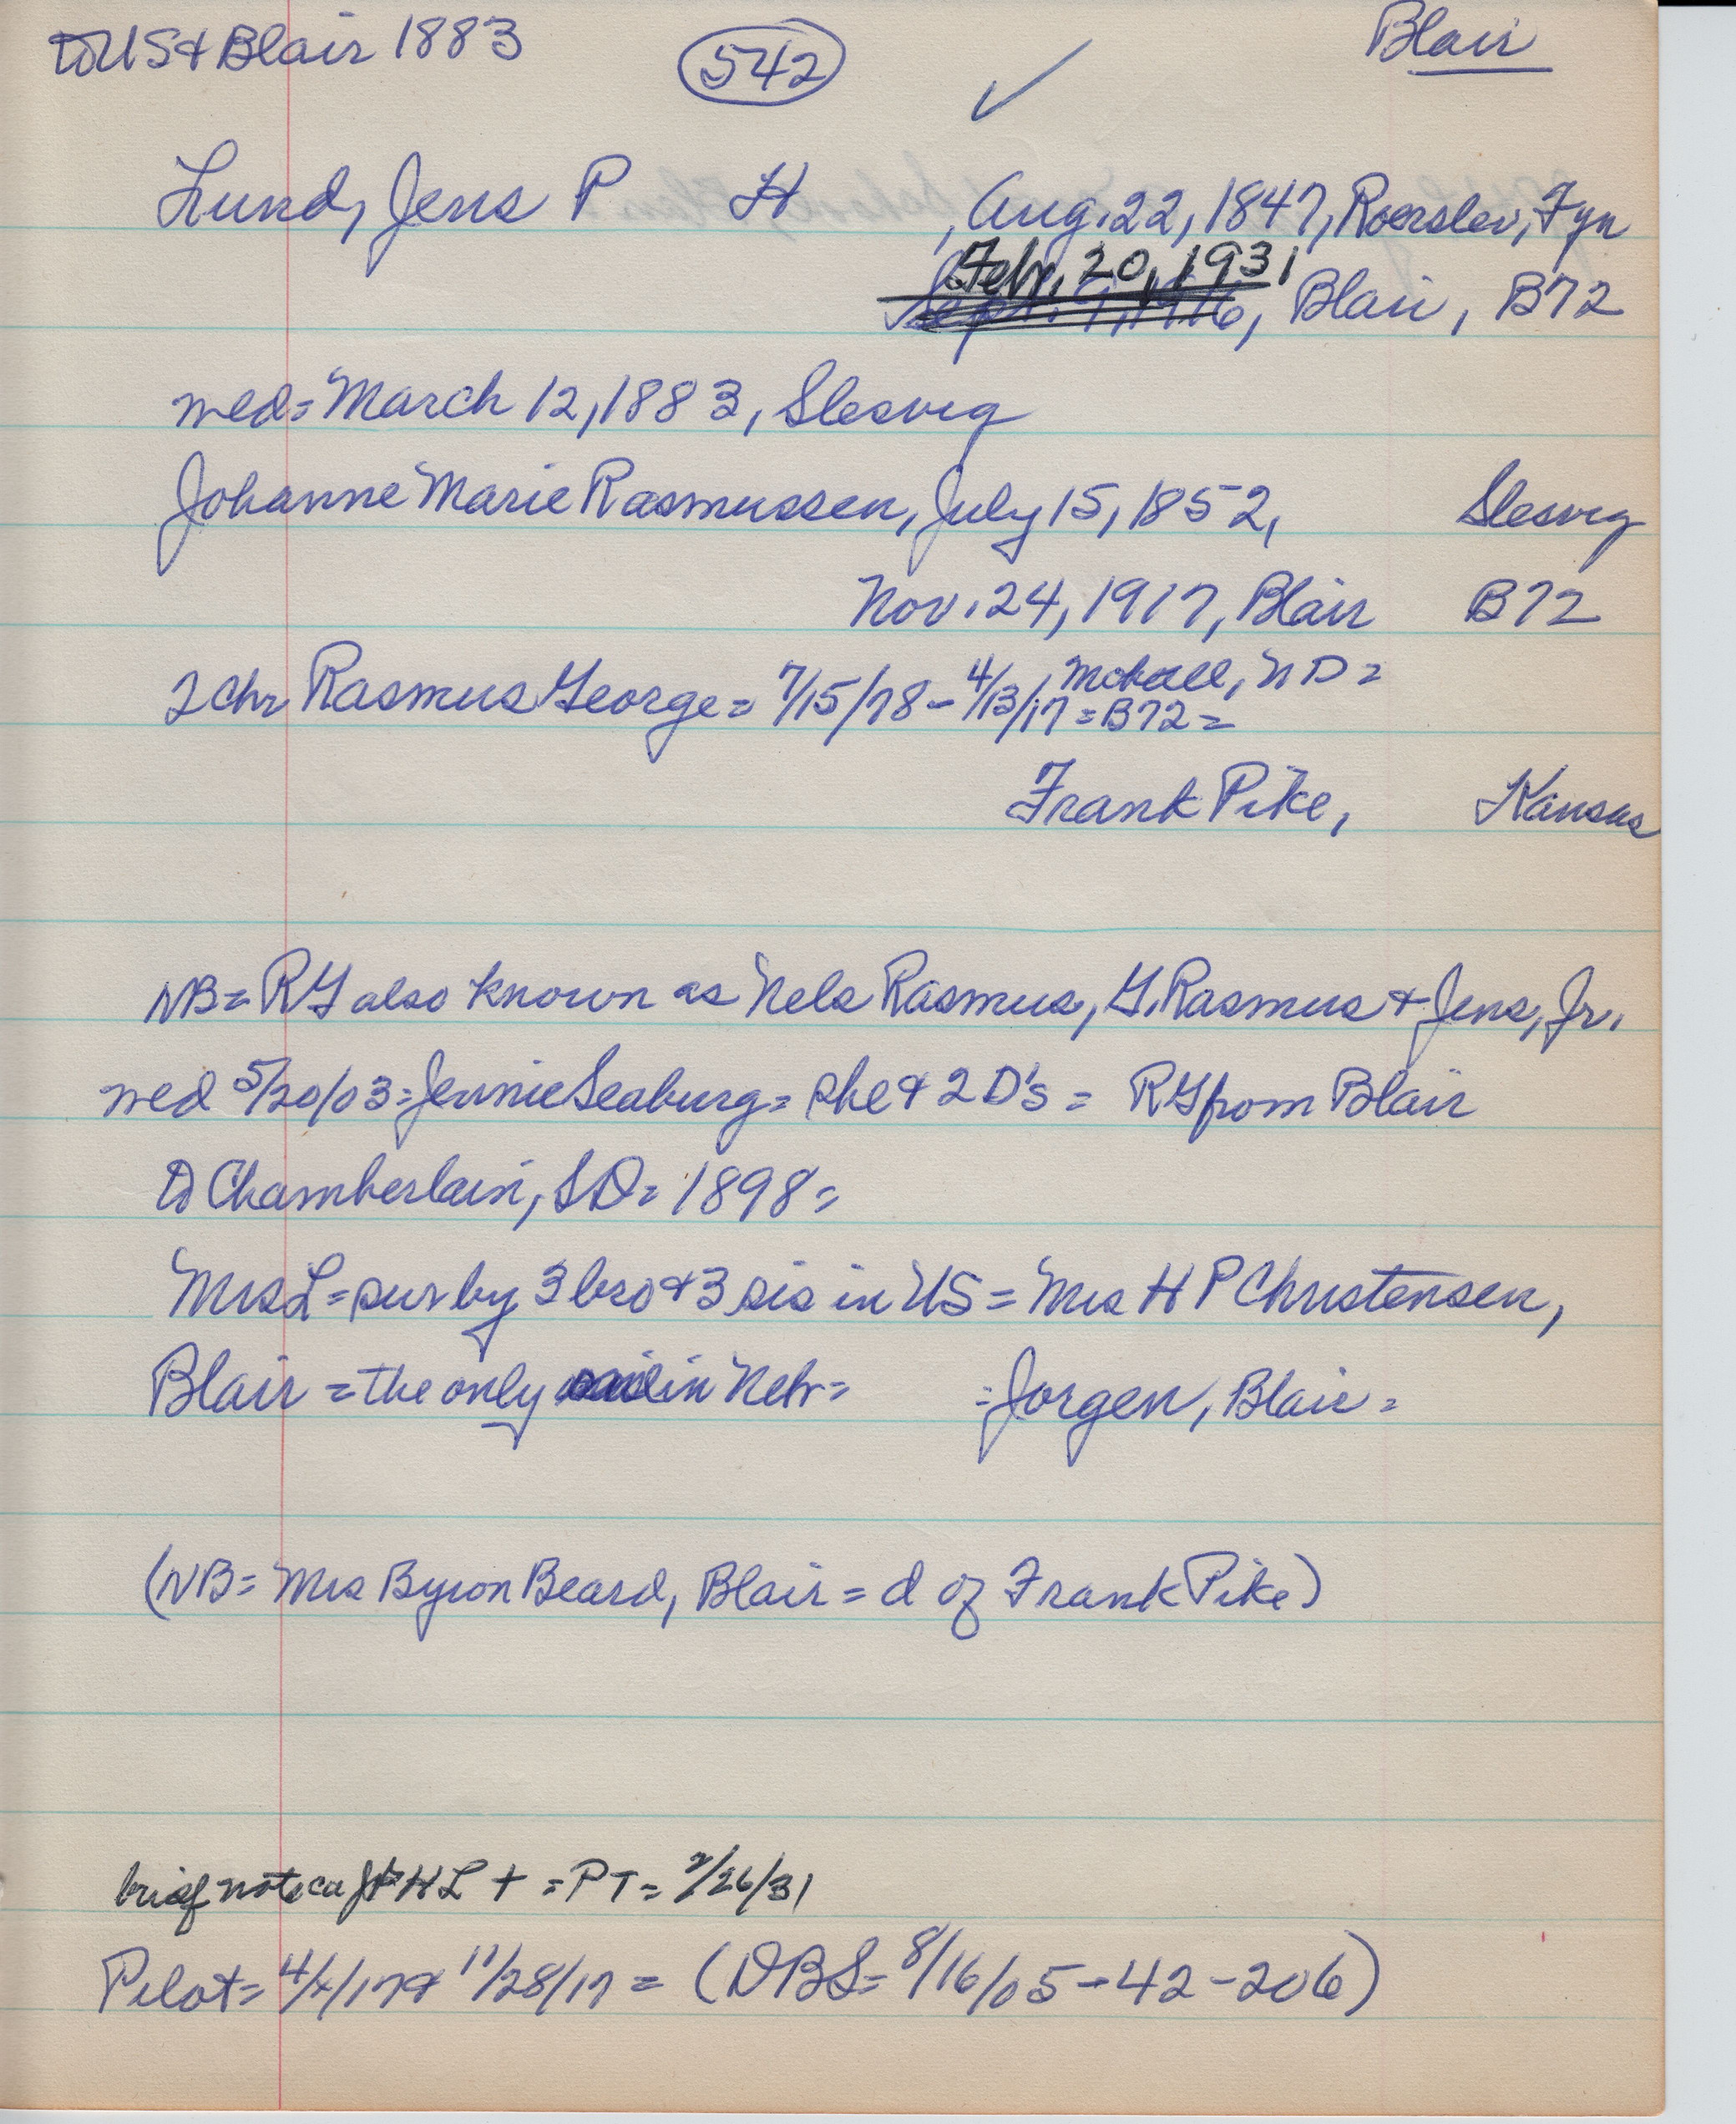 to US & Blair 1883 542 ✓ Blair
Lund, Jens P H , Aug. 22, 1847, Roerslev, Fyn
Febr. 20, 1931
Blair, B72
wed = March 12, 1883, Slesvig
Johanne Marie Rasmussen, July 15, 1852, Slesvig
Nov. 24, 1917, Blair B72
2 chr Rasmus George = 7/15/78 - 4/13/17 = B72 =
Mohall, ND =
Frank Pike, Kansas
NB = RG also known as Nels Rasmus, G. Rasmus & Jens, Jr.
wed 5/20/03 = Jennie Seaburg = she & 2 D's = RG from Blair
to Chamberlain, SD = 1898 =
Mrs L = sur by 3 bro & 3 sis in US = Mrs H P Christensen,
Blair = the only in Nebr = = Jorgen, Blair =
(NB = Mrs Byron Beard, Blair = d of Frank Pike)
brief note ca JPHL + = PT = 2/26/31
Pilot = 4/4/17 & 11/28/17 = (DBS = 8/16/05 - 42 - 206)